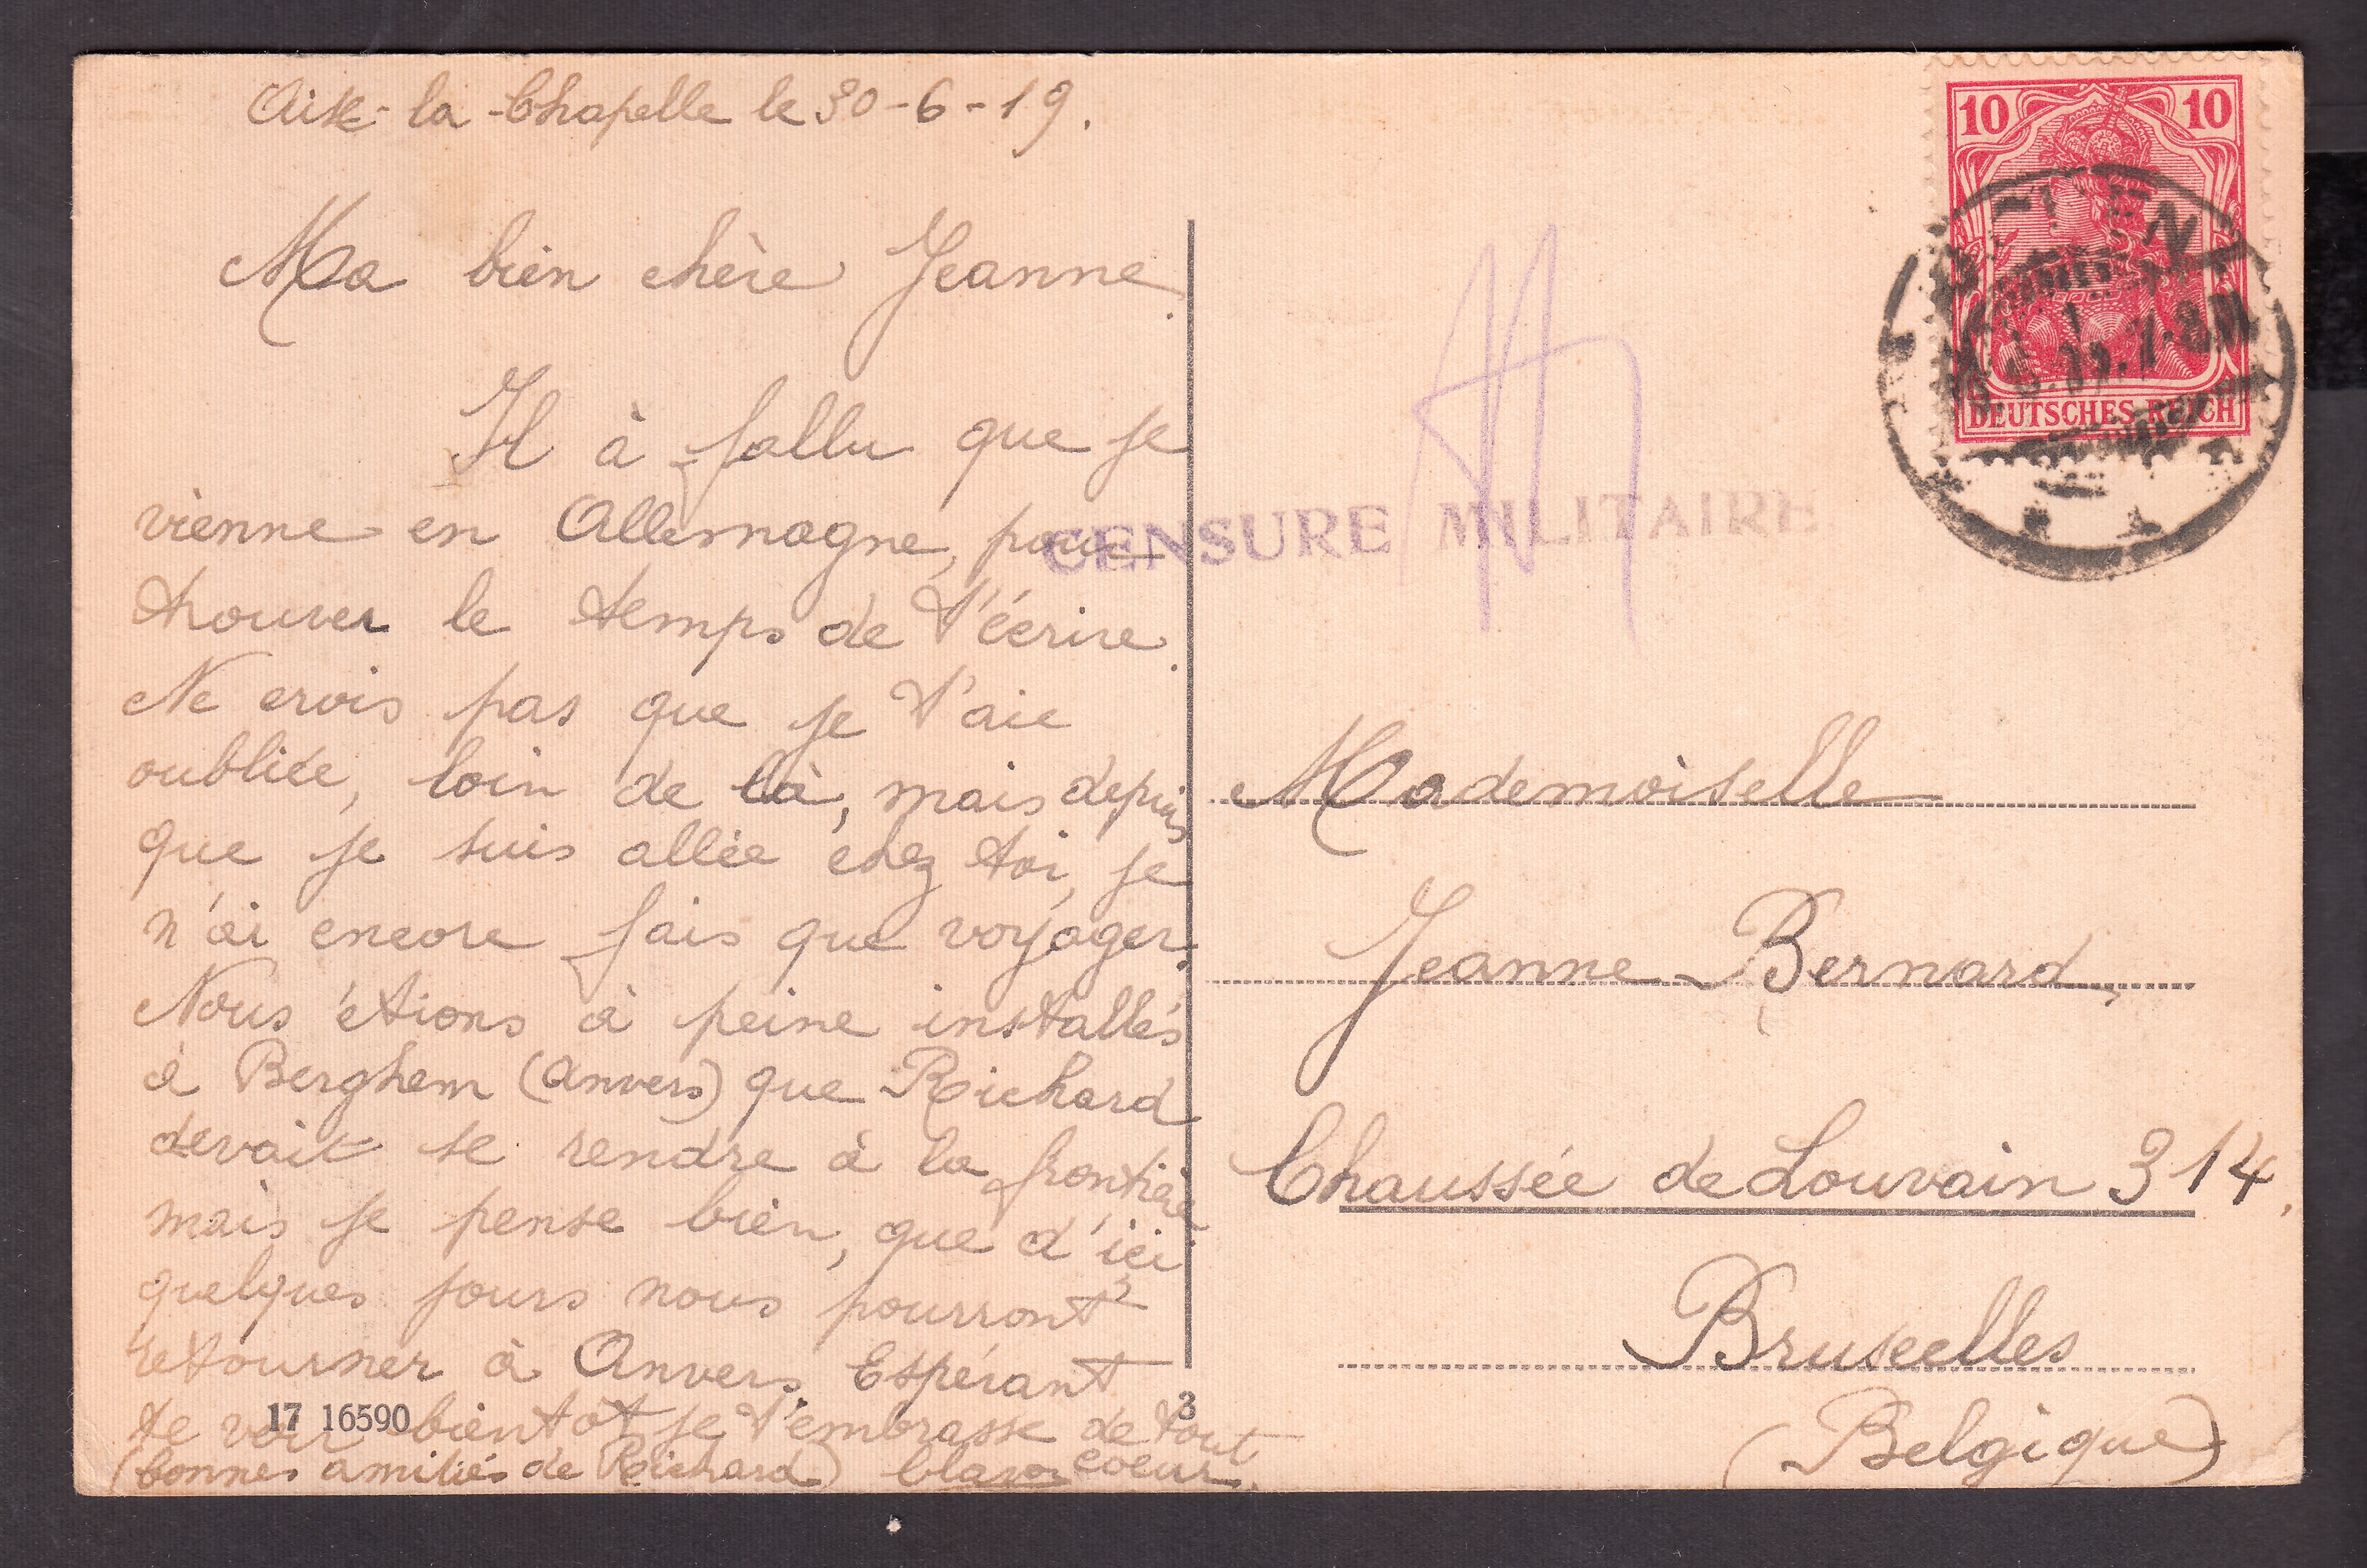 Aix-la-Chapelle le 30-6-19.
Ma bien chère Jeanne.
Il à fallu que je
vienne en Allemagne, pour
trouver le temps de t'écrire.
Ne crois pas que je t'aie
oubliée, loin de là, mais depuis
que je suis allée chez toi, je
n'ai encore fais que voyager.
Nous étions à peine installés
à Berghem (Anvers) que Richard
devait se rendre à la frontière
mais je pense bien, que d'ici
quelques jours nous pourront
retourner à Anvers. Espérant
te voir bientôt je t'embrasse de tout
coeur.
(bonnes amitiés de Richard) Clara
17 16590
3
CENSURE MILITAIRE
10 10
DEUTSCHES REICH
Mademoiselle
Jeanne Bernard,
Chaussée de Louvain 314.
Bruxelles
(Belgique)